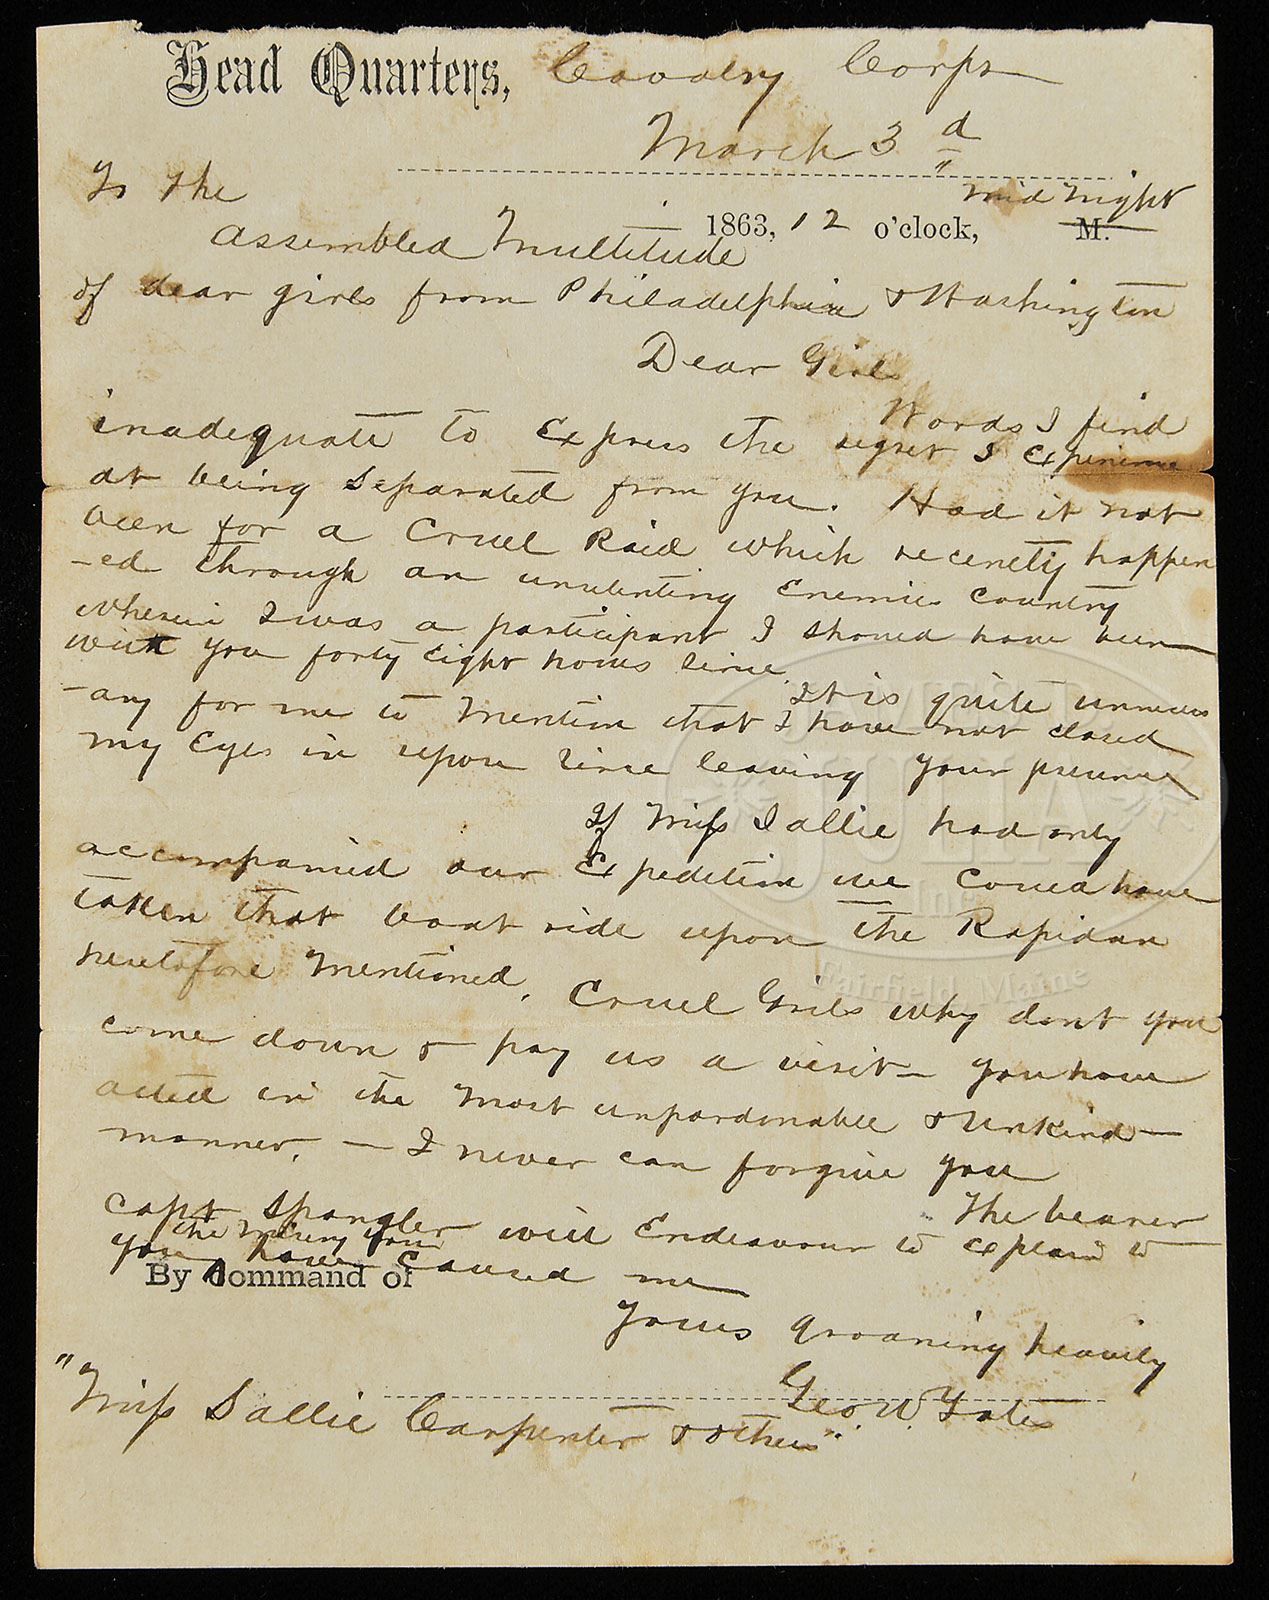 Head Quarters, Cavalry Corps
March 3d
To the
mid night
1863, 12 o'clock, M.
assembled Multitude
of dear girls from Philadelphia & Washington
Dear Girls
Words I find
inadequate to Express the regret I Experience
at being Separated from you. Had it not
been for a Cruel Raid which recently happen
-ed through an unrelenting Enemies Country
wherein I was a participant I should have been
with you forty Eight hours since.
It is quite unnecess
-ary for me to mention that I have not closed
my Eyes in repose since leaving your presence
If Miss Sallie had only
accompanied our Expedition we Could have
taken that boat ride upon the Rapidan
heretofore mentioned. Cruel Girls why dont you
come down & pay us a visit - You have
acted in the most unpardonable & Unkind
manner. - I never can forgive you
The bearer
Capt Spangler will Endeavour to explain to
the misery you
you have Caused me
By Command of
Yours groaning heavily
Geo. W. Yates
"Miss Sallie Carpenter & others"
JAMES D.
JULIA
Inc.
Fairfield, Maine